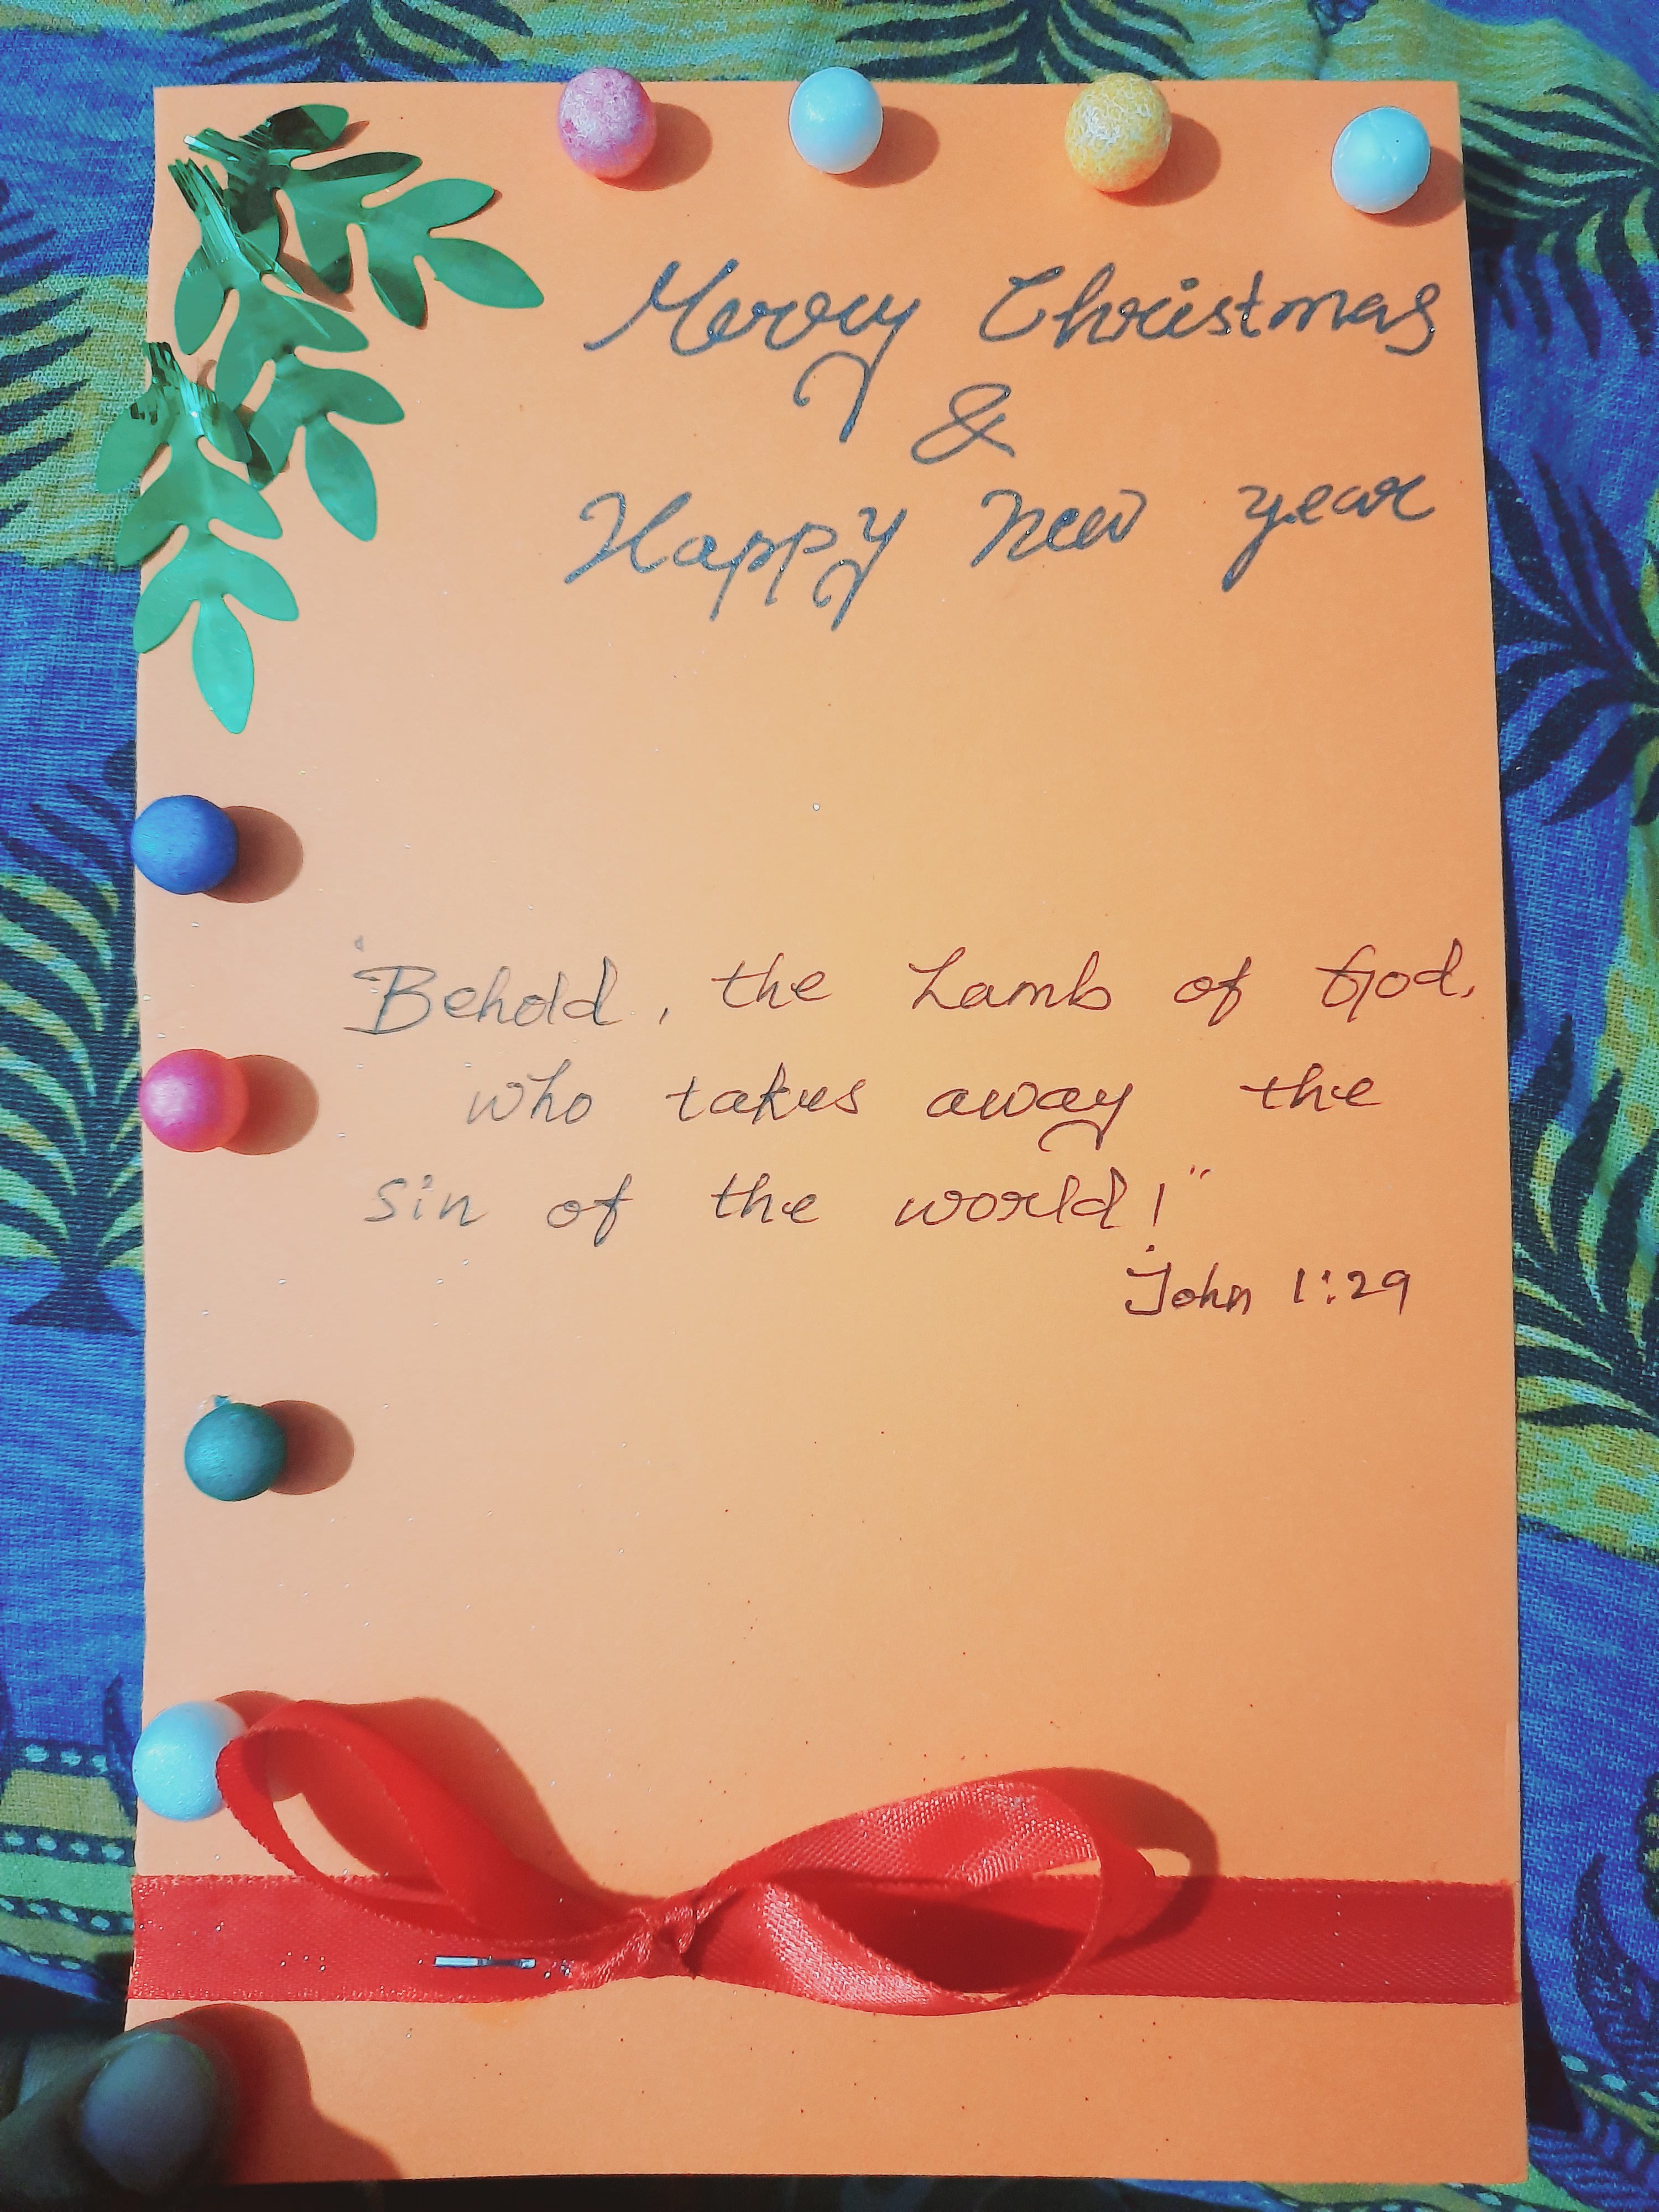 Merry Christmas
&
Happy New year
"Behold, the Lamb of God,
who takes away the
sin of the world!"
John 1:29